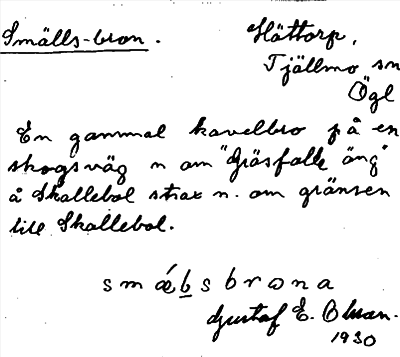 Smälls-bron.
Hättorp,
Tjällmo sn
Ögl
En gammal kavelbro på en
skogsväg n om "Gräsfalls äng"
å Skallebol strax n. om gränsen
till Skallebol.
smǽb̲sbrωna
Gustaf E. Olsson.
1930